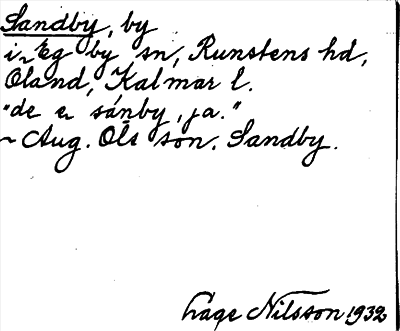 Sandby, by
i Egby sn, Runstens hd,
Öland, Kalmar l.
"de e sánby, ja."
~ Aug. Olsson. Sandby.
Nilsson 1932